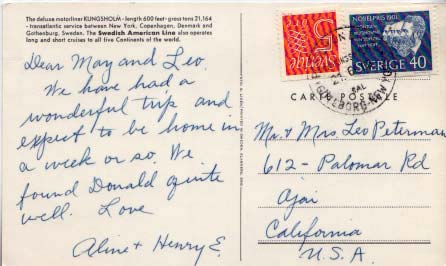 The deluxe motorliner KUNGSHOLM - length 600 feet - gross tons 21,164
- transatlantic service between New York, Copenhagen, Denmark and
Gothenburg, Sweden. The Swedish American Line also operates
long and short cruises to all five Continents of the world.
Dear May and Leo.
We have had a
wonderful trip and
expect to be home in
a week or so. We
found Donald quite
well. Love
Aline + Henry E.
5
SVERIGE
NOBELPRIS 1901
SVERIGE 40
CARTE POSTALE
GÖTEBORG-NEW YORK
Mr. + Mrs Leo Peterman
612 - Palomar Rd
Ojai
California
U.S.A.